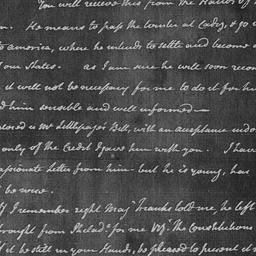 You will receive this from the Hands of
n. He means to pass the winter at Cadiz, & go
to america, where he intends to settle and become a
our States. as I am sure he will soon recom
it will not be necessary for me to do it for him
d him sensible and well informed—
closed is Mr Littlepage's Bill, with an acceptance endo
only of the Credit I gave him with you. I have
passionate Letter from him – but he is young, has
be wise.
If I remember right Majr Franks told me he left
brought from Philada. for me Vizt. The Constitutions
if it be still in your Hands, be pleased to present it